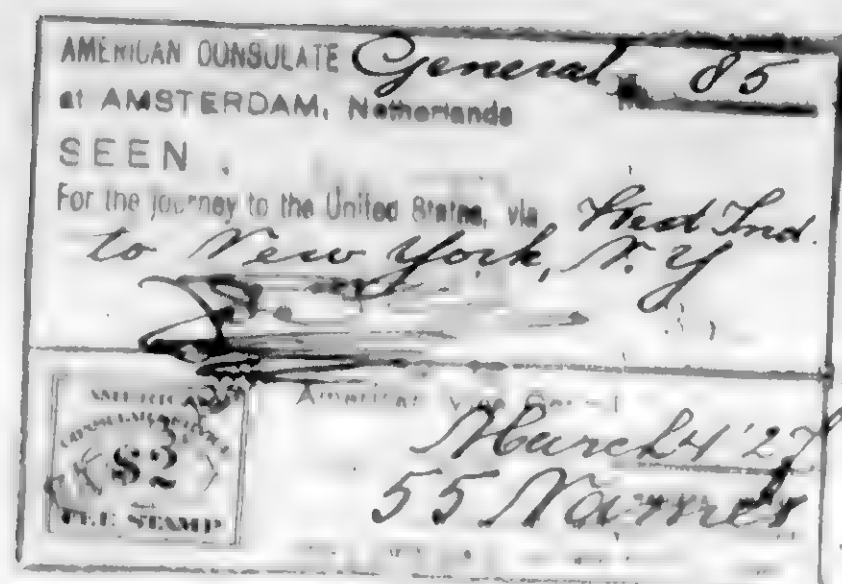 AMERICAN CONSULATE General No. 85
at AMSTERDAM, Netherlands
SEEN
For the journey to the United States, via
to New York, N.Y
American Vice Consul
March 4 '27
55 Names
AMERICAN
CONSULAR SERVICE
$2
FEE STAMP